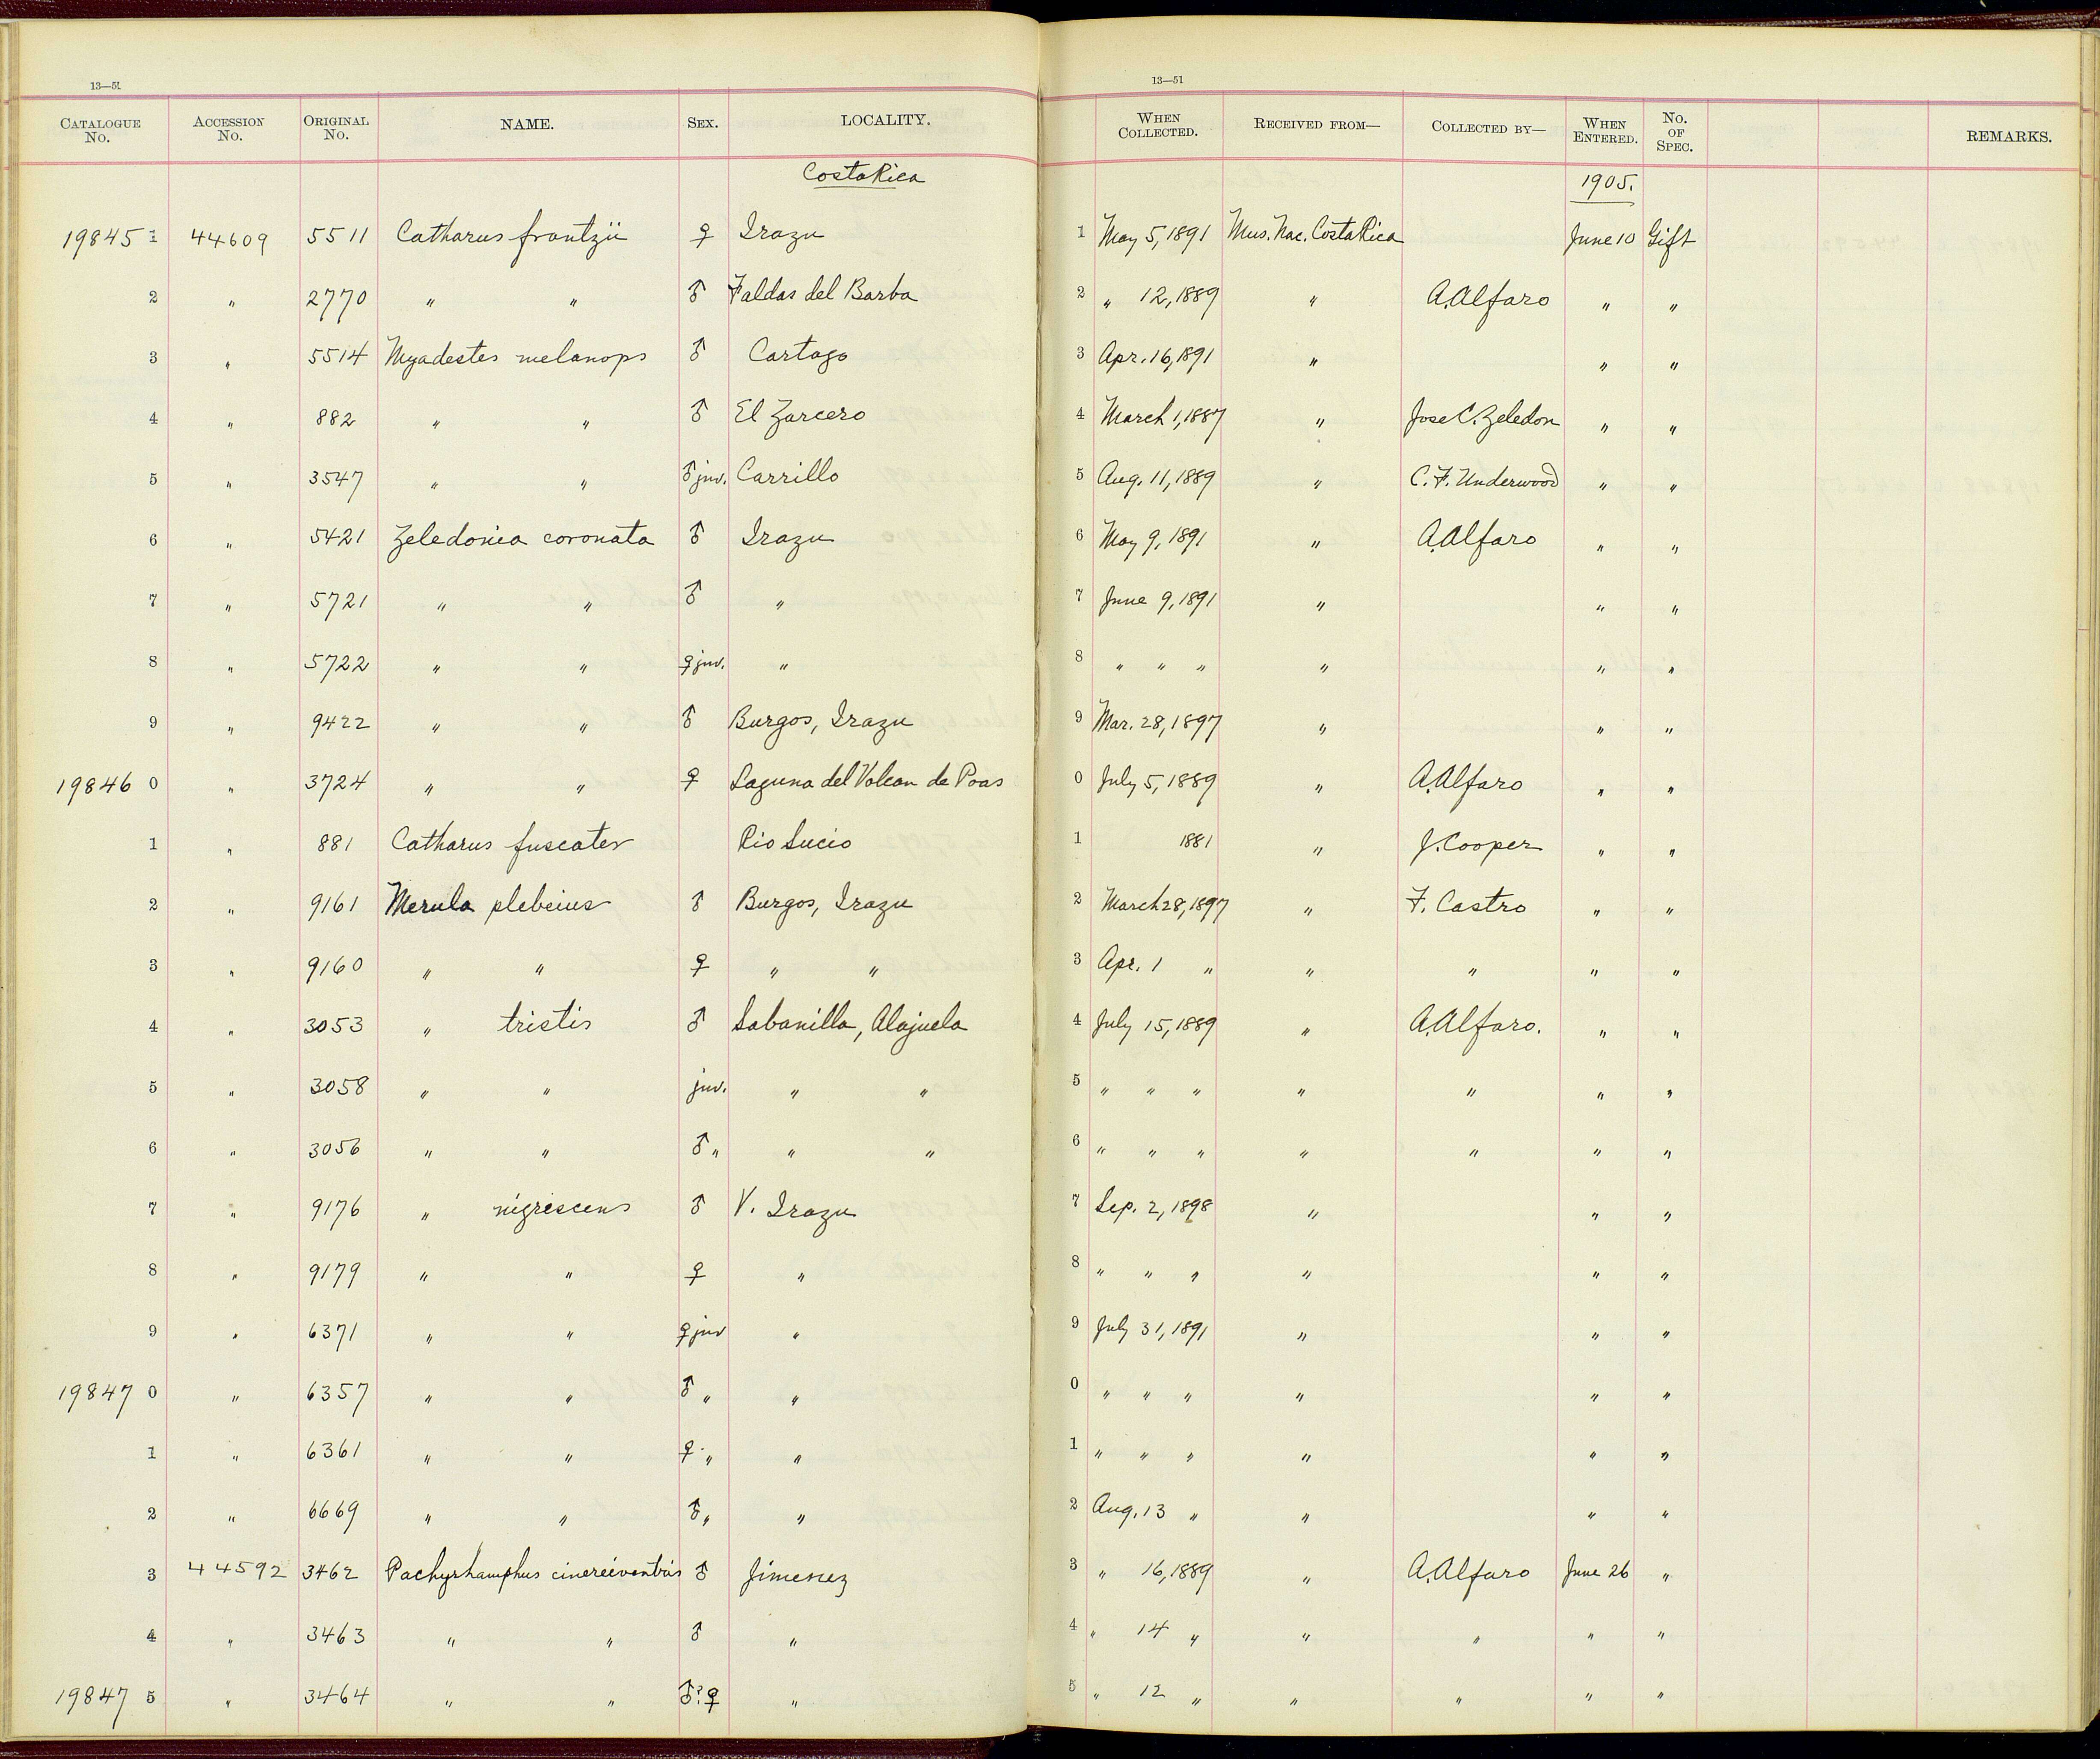 13—51 13—51
CATALOGUE No. ACCESSION No. ORIGINAL No. NAME. SEX. LOCALITY. WHEN COLLECTED. RECEIVED FROM— COLLECTED BY— WHEN ENTERED. No. OF SPEC. REMARKS.
Costa Rica 1905.
19845 1 44609 5511 Catharus frantzii ♀ Irazu 1 May 5, 1891 Mus. Nac. Costa Rica June 10 Gift
2 " 2770 " " ♂ Faldas del Barba 2 " 12, 1889 " A. Alfaro " "
3 " 5514 Myadestes melanops ♂ Cartago 3 Apr. 16, 1891 " " "
4 " 882 " " ♂ El Zarcero 4 March 1, 1887 " Jose C. Zeledon " "
5 " 3547 " " ♂ juv. Carrillo 5 Aug. 11, 1889 " C. F. Underwood " "
6 " 5421 Zeledonia coronata ♂ Irazu 6 May 9, 1891 " A. Alfaro " "
7 " 5721 " " ♂ " 7 June 9, 1891 " " "
8 " 5722 " " ♀ juv. " 8 " " " " " "
9 " 9422 " " ♂ Burgos, Irazu 9 Mar. 28, 1897 " " "
19846 0 " 3724 " " ♀ Laguna del Volcan de Poas 0 July 5, 1889 " A. Alfaro " "
1 " 881 Catharus fuscater Rio Sucio 1 1881 " J. Cooper " "
2 " 9161 Merula plebeius ♂ Burgos, Irazu 2 March 28, 1897 " F. Castro " "
3 " 9160 " " ♀ " " 3 Apr. 1 " " " " "
4 " 3053 " tristis ♂ Sabanilla, Alajuela 4 July 15, 1889 " A. Alfaro. " "
5 " 3058 " " juv. " " 5 " " " " " " "
6 " 3056 " " ♂ " " " 6 " " " " " " "
7 " 9176 " nigrescens ♂ V. Irazu 7 Sep. 2, 1898 " " "
8 " 9179 " " ♀ " 8 " " " " " "
9 " 6371 " " ♀ juv " 9 July 31, 1891 " " "
19847 0 " 6357 " " ♂ " " 0 " " " " " "
1 " 6361 " " ♀ " " 1 " " " " " "
2 " 6669 " " ♂ " " 2 Aug. 13 " " " "
3 44592 3462 Pachyrhamphus cinereiventris ♂ Jimenez 3 " 16, 1889 " A. Alfaro June 26 "
4 " 3463 " " ♂ " 4 " 14 " " " " "
19847 5 " 3464 " " ♂? ♀ " 5 " 12 " " " " "